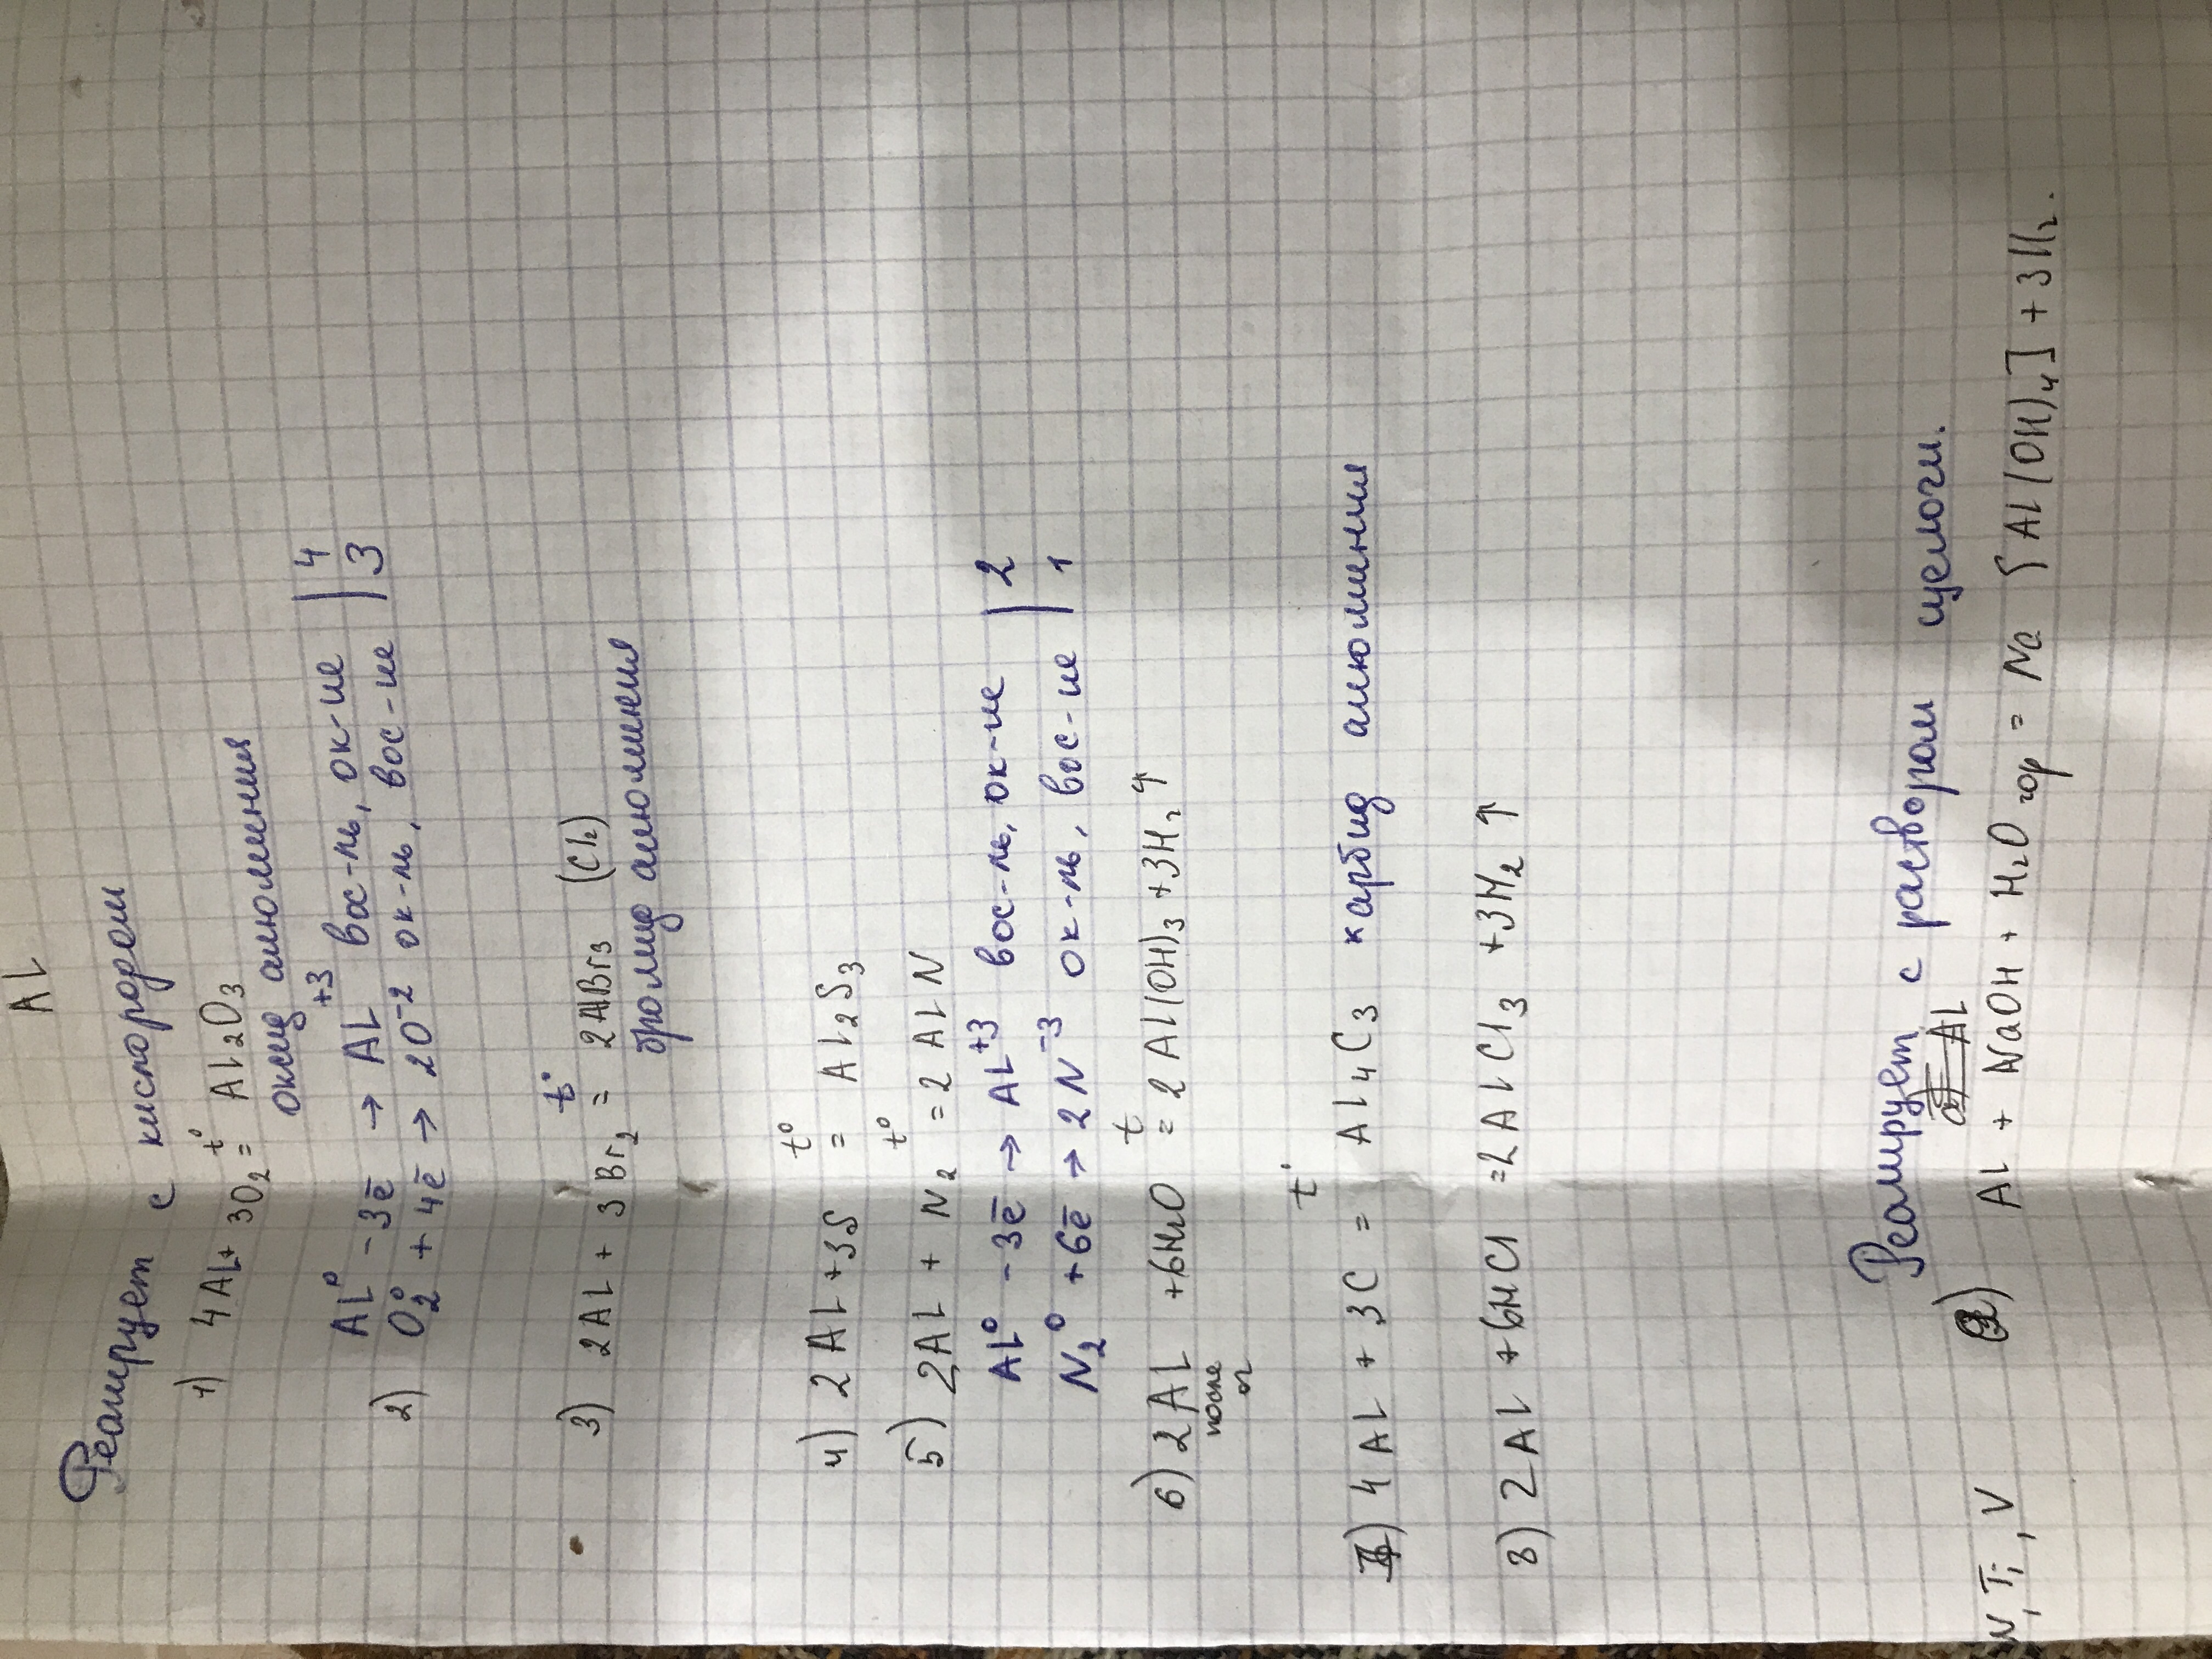 AL
Реагирует с кислородом
1) 4AL + 3O₂ =ᵗ° AL₂O₃
оксид алюминия
AL⁰ - 3ē → AL⁺³ вос-ль, ок-ие | 4
2) O₂⁰ + 4ē → 2O⁻² ок-ль, вос-ие | 3
t°
3) 2AL + 3Br₂ = 2AlBr₃ (Cl₂)
бромид алюминия
t°
4) 2AL + 3S = AL₂S₃
t°
5) 2AL + N₂ = 2ALN
AL⁰ - 3ē → AL⁺³ вос-ль, ок-ие | 2
N₂⁰ + 6ē → 2N⁻³ ок-ль, вос-ие | 1
t
6) 2AL + 6H₂O = 2AL(OH)₃ + 3H₂↑
после
t°
7) 4AL + 3C = AL₄C₃ карбид алюминия
8) 2AL + 6HCl = 2ALCl₃ + 3H₂↑
Реагирует с раствором щелочи.
AL
W, Ti, V
AL + NaOH + H₂O гор = Na [AL(OH)₄] + 3H₂.